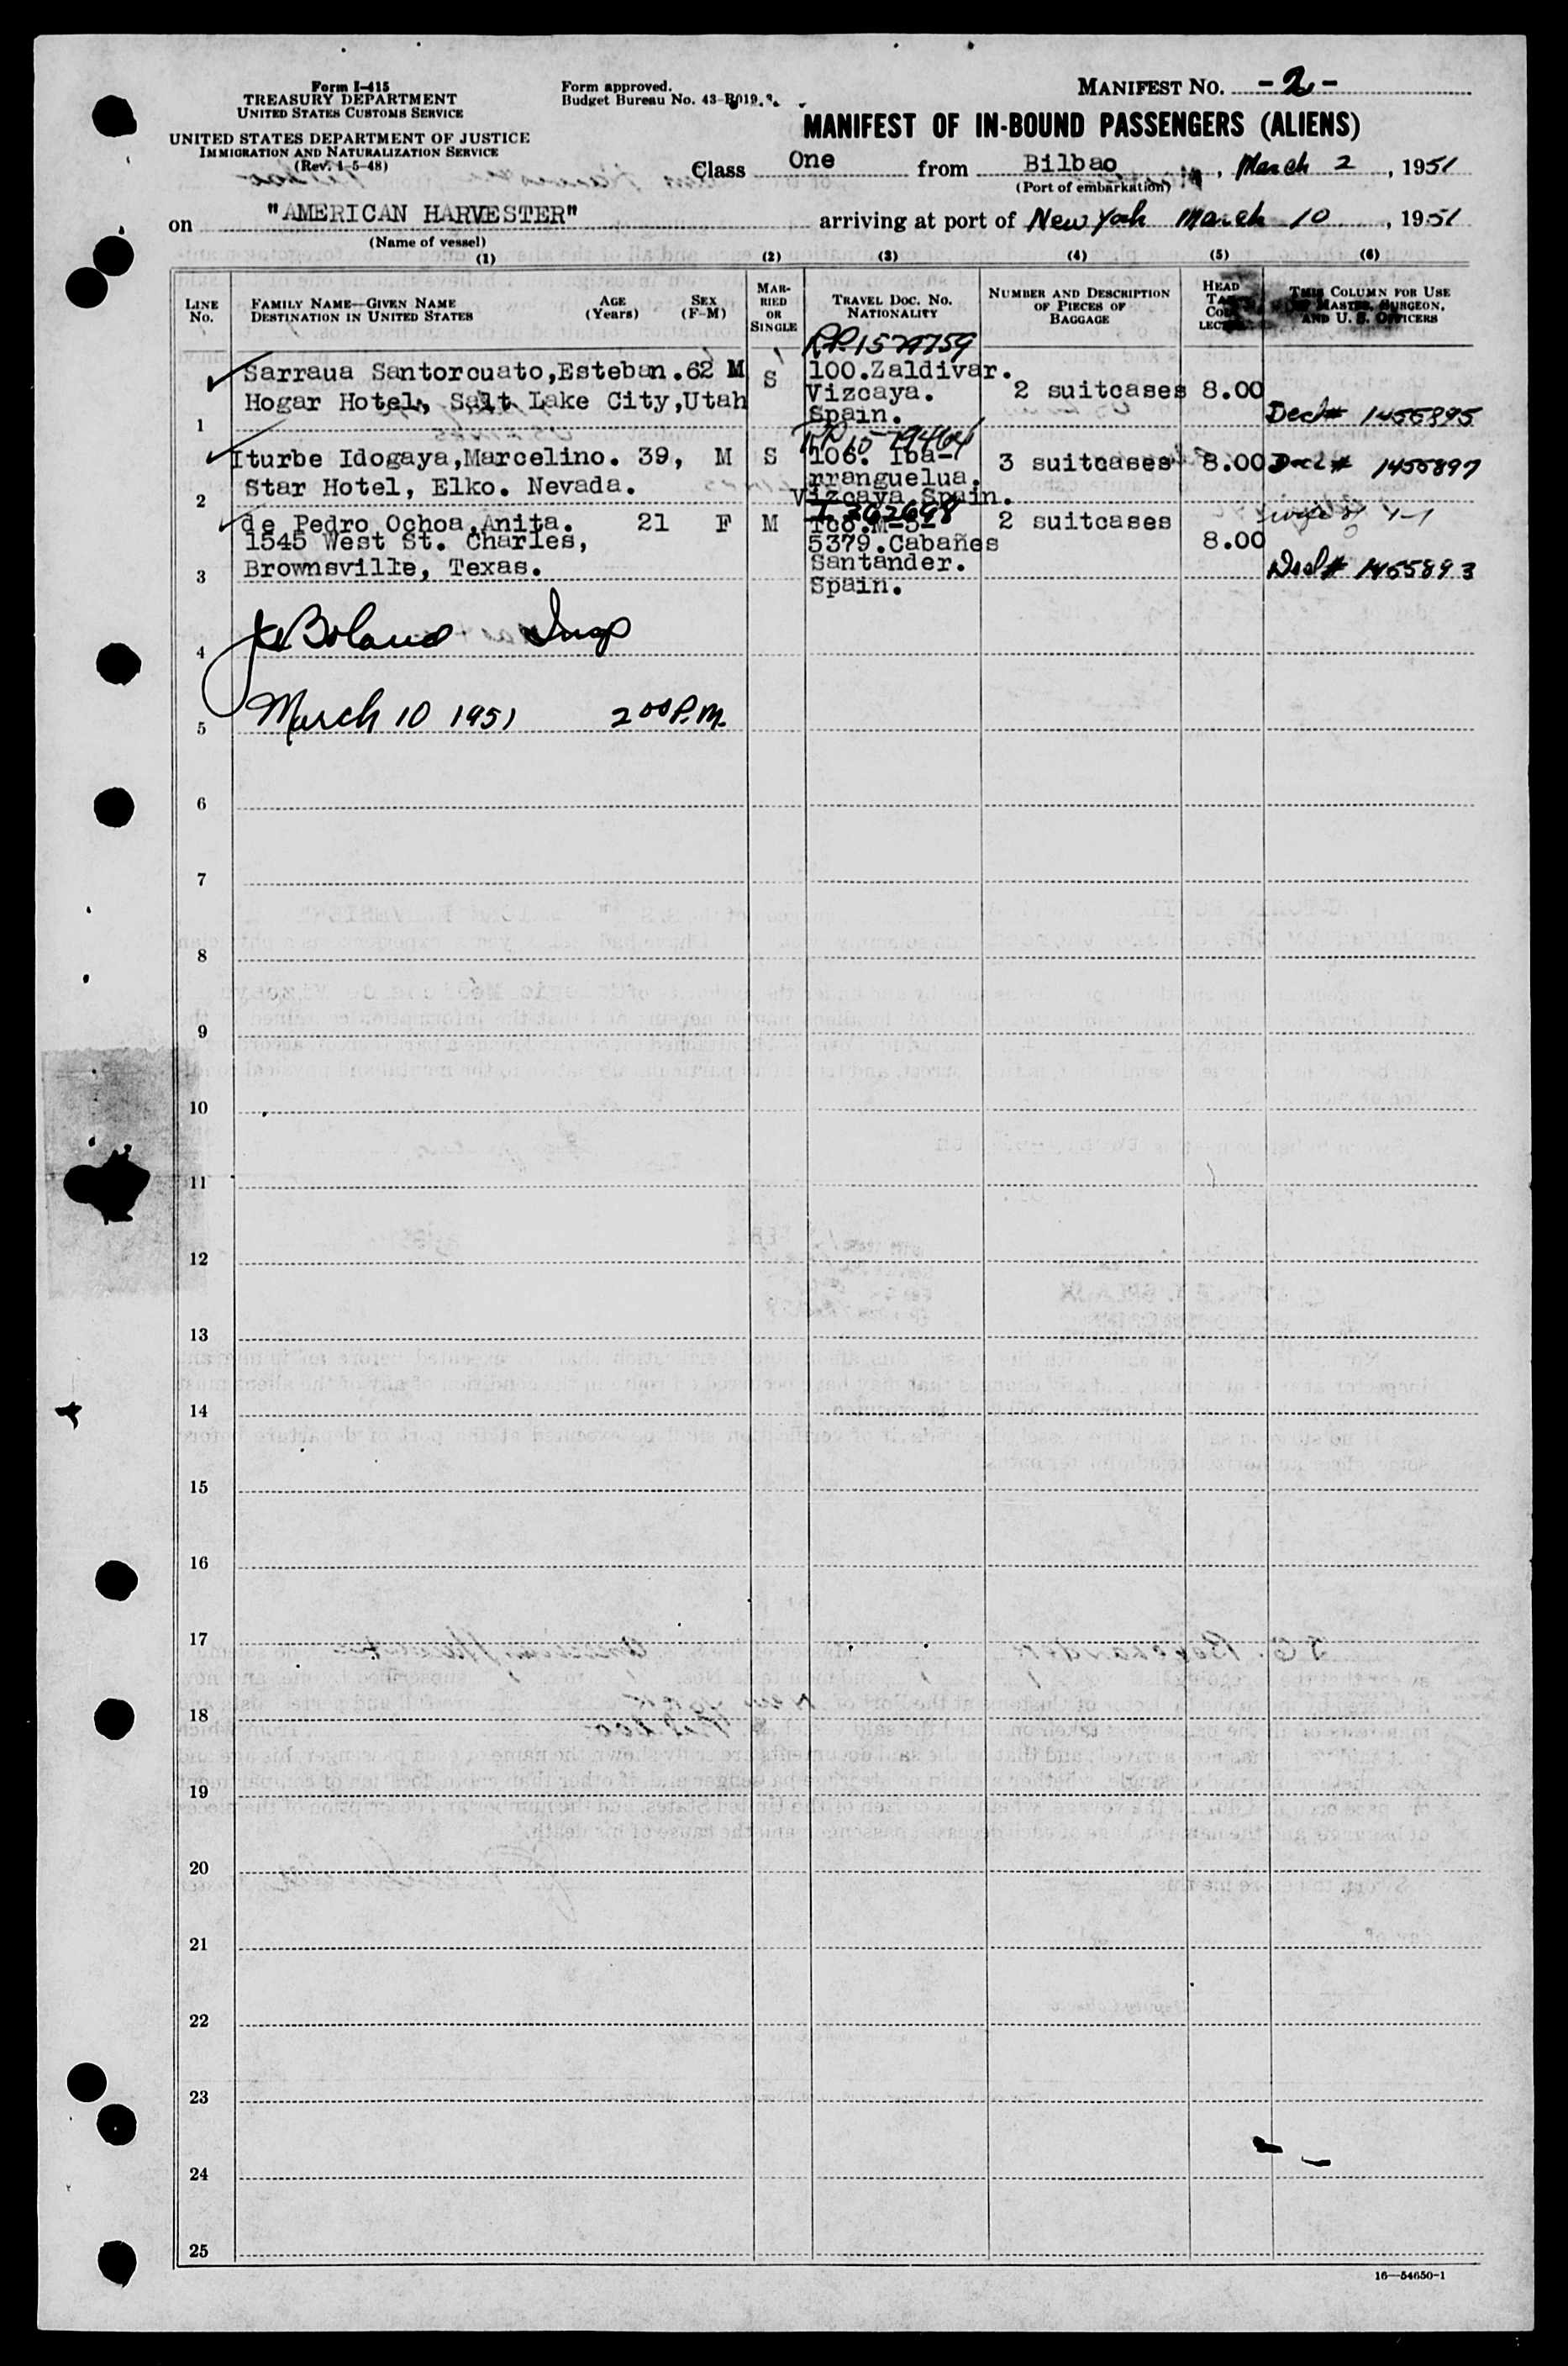 Form I-415
TREASURY DEPARTMENT
UNITED STATES CUSTOMS SERVICE
UNITED STATES DEPARTMENT OF JUSTICE
IMMIGRATION AND NATURALIZATION SERVICE
(Rev. 1-5-48)
Form approved.
Budget Bureau No. 43-R019.2.
MANIFEST NO. -2-
MANIFEST OF IN-BOUND PASSENGERS (ALIENS)
Class One from Bilbao, March 2, 1951
(Port of embarkation)
on "AMERICAN HARVESTER" arriving at port of New York March 10, 1951
(Name of vessel)
(1) (2) (3) (4) (5) (6)
LINE No.
FAMILY NAME—GIVEN NAME
DESTINATION IN UNITED STATES
AGE (Years)
SEX (F-M)
MARRIED OR SINGLE
TRAVEL DOC. NO.
NATIONALITY
NUMBER AND DESCRIPTION OF PIECES OF BAGGAGE
HEAD TAX COLLECTED
THIS COLUMN FOR USE OF MASTER, SURGEON, AND U. S. OFFICERS
1
Sarraua Santorcuato,Esteban.62 M S
Hogar Hotel, Salt Lake City,Utah
100.Zaldivar.
Vizcaya.
Spain.
2 suitcases 8.00
Decl# 1455895
2
Iturbe Idogaya,Marcelino. 39, M S
Star Hotel, Elko. Nevada.
106. Iba-
rranguelua.
Vizcaya Spain.
3 suitcases 8.00 Decl# 1455897
3
de Pedro Ochoa,Anita. 21 F M
1545 West St. Charles,
Brownsville, Texas.
I 262698
5379.Cabañes
Santander.
Spain.
2 suitcases
8.00
Decl# 1455893
4
Boland Insp
5
March 10 1951 2 00 P.M.
6
7
8
9
10
11
12
13
14
15
16
17
18
19
20
21
22
23
24
25
16—54650-1